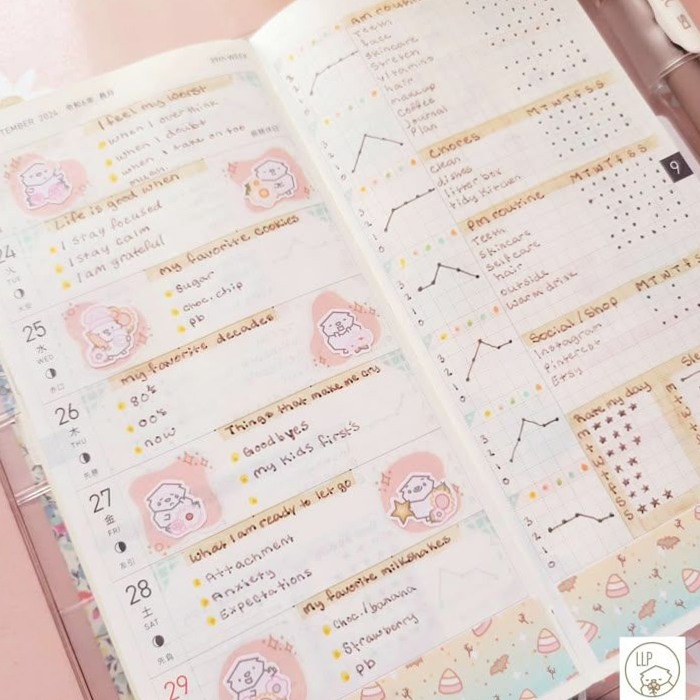 TEMBER 2024 令和6年 教行
39th WEEK
I feel my worst
when I overthink
when I doubt
when I take on too
much
Life is good when
24
火
TUE
I stay focused
I stay calm
I am grateful
my favorite cookies
Sugar
choc. chip
pb
25
水
WED
my favorite decades
80's
00's
now
26
木
THU
先勝
Things that make me cry
Goodbyes
my kids firsts
27
金
FRI
友引
What I am ready to let go
Attachment
Anxiety
Expectations
28
土
SAT
先負
my favorite milkshakes
choc./banana
Strawberry
pb
29
am routine
Teeth
Face
skincare
stretch
vitamins
hair
makeup
coffee
Journal
Plan
Chores M T W T F S S
clean
dishes
litter box
tidy kitchen
9
Pm routine M T W T F S S
Teeth
skincare
selfcare
hair
outside
warm drink
Social/Shop M T W T F S
Instagram
Pinterest
Etsy
Rate my day
M
T
W
T
F
S
S
3
2
1
0
3
2
1
0
3
2
1
0
3
2
1
0
3
2
1
0
3
2
1
0
3
2
1
0
LLP